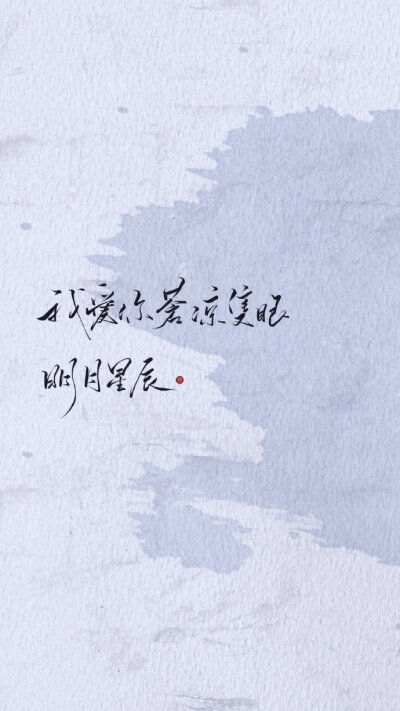 我爱你蒼凉隻眼
明月星辰